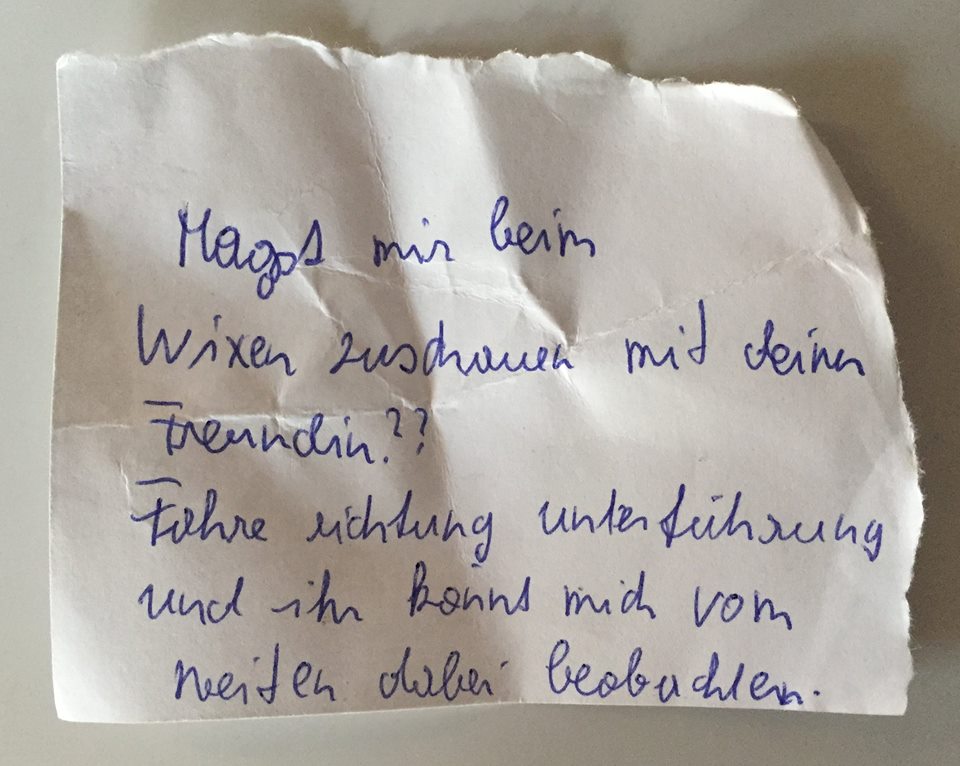 Magst mir beim
Wixen zuschauen mit deiner
Freundin??
Fahre richtung unterführung
und ihr könnt mich vom
weiten dabei beobachten.